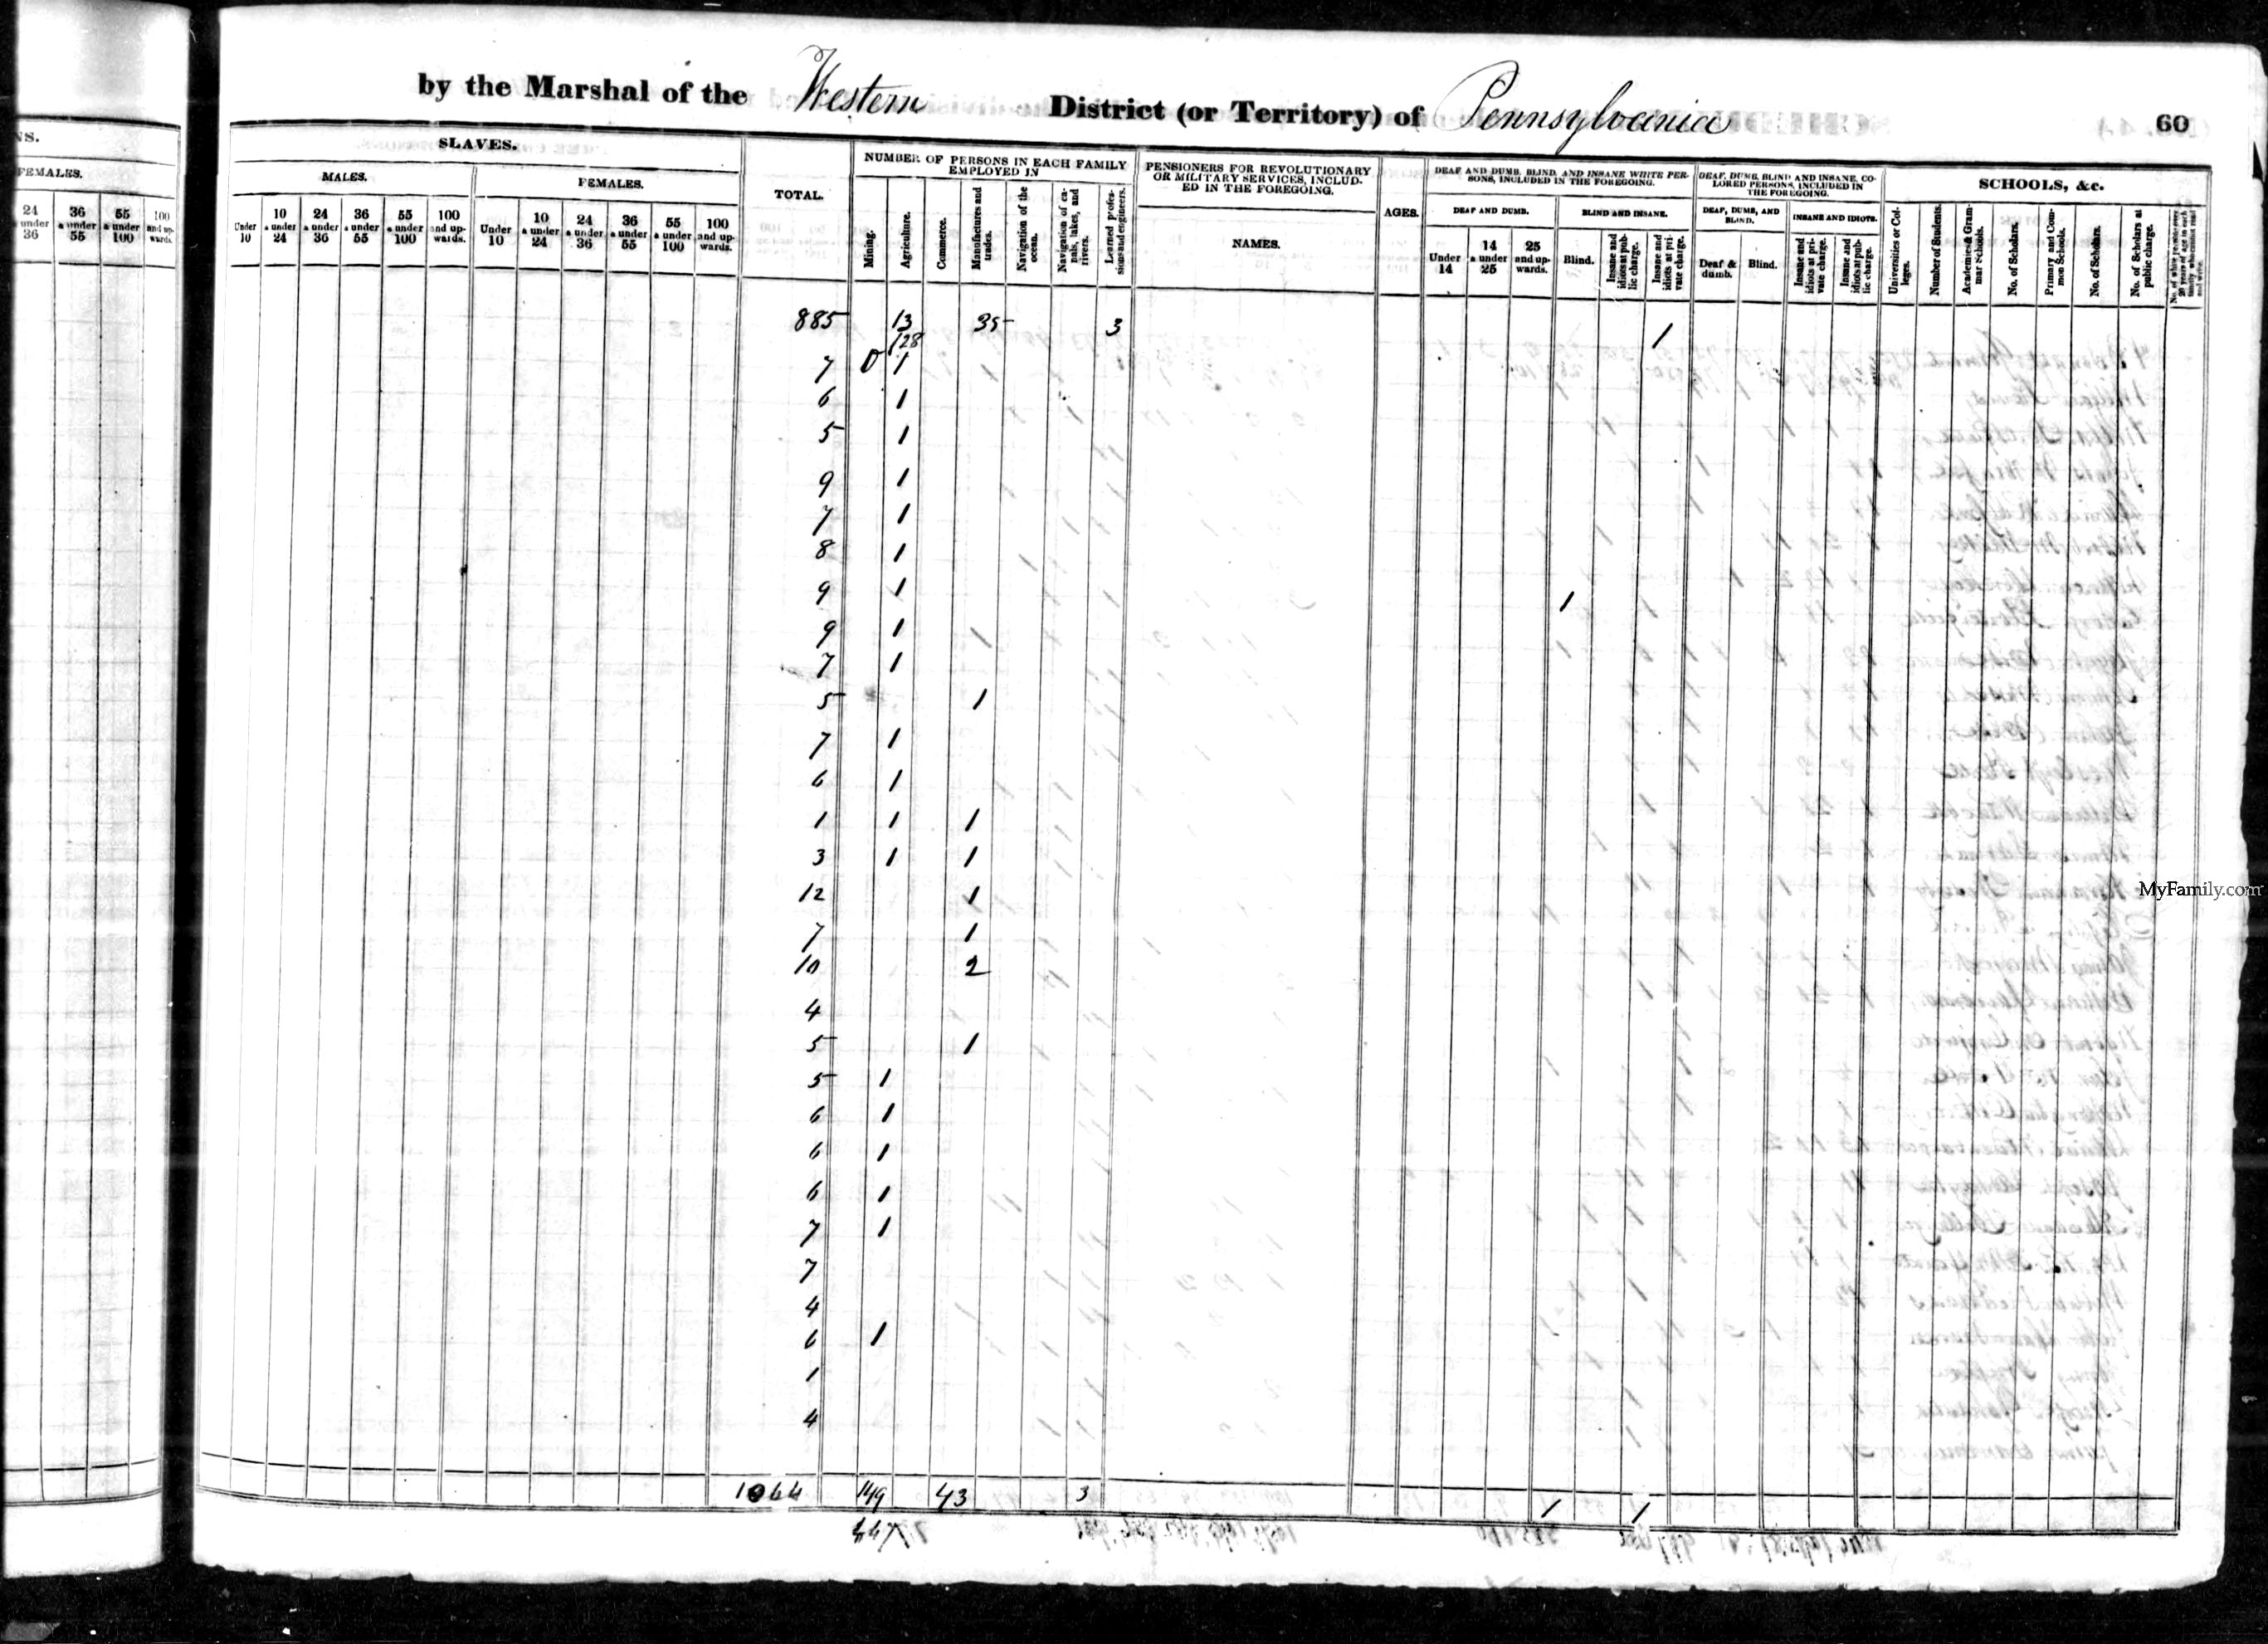 by the Marshal of the Western District (or Territory) of Pennsylvania 60
NS.
FEMALES.
24 under 36
36 & under 55
55 & under 100
100 and up-wards.
SLAVES.
MALES.
FEMALES.
Under 10
10 & under 24
24 & under 36
36 & under 55
55 & under 100
100 and up-wards.
Under 10
10 & under 24
24 & under 36
36 & under 55
55 & under 100
100 and up-wards.
TOTAL.
NUMBER OF PERSONS IN EACH FAMILY EMPLOYED IN
Mining.
Agriculture.
Commerce.
Manufactures and trades.
Navigation of the ocean.
Navigation of ca-nals, lakes, and rivers.
Learned profes-sions and engineers.
PENSIONERS FOR REVOLUTIONARY OR MILITARY SERVICES, INCLUD-ED IN THE FOREGOING.
NAMES.
AGES.
DEAF AND DUMB, BLIND, AND INSANE WHITE PER-SONS, INCLUDED IN THE FOREGOING.
DEAF AND DUMB.
Under 14
14 & under 25
25 and up-wards.
BLIND AND INSANE.
Blind.
Insane and idiots at pub-lic charge.
Insane and idiots at pri-vate charge.
DEAF, DUMB, BLIND AND INSANE, CO-LORED PERSONS, INCLUDED IN THE FOREGOING.
DEAF, DUMB, AND BLIND.
Deaf & dumb.
Blind.
INSANE AND IDIOTS.
Insane and idiots at pri-vate charge.
Insane and idiots at pub-lic charge.
SCHOOLS, &c.
Universities or Col-leges.
Number of Students.
Academies & Gram-mar Schools.
No. of Scholars.
Primary and Com-mon Schools.
No. of Scholars.
No. of Scholars at public charge.
No. of white persons over 20 years of age in each family who cannot read and write.
885 13 35 3 1
128
7 0 1
6 1
5 1
9 1
7 1
8 1
9 1 1
9 1
7 1
5 1
7 1
6 1
1 1 1
3 1 1
12 1
7 1
10 2
4
5 1
5 1
6 1
6 1
6 1
7 1
7
4
6 1
1
4
1064 149 43 3 1 1
MyFamily.com